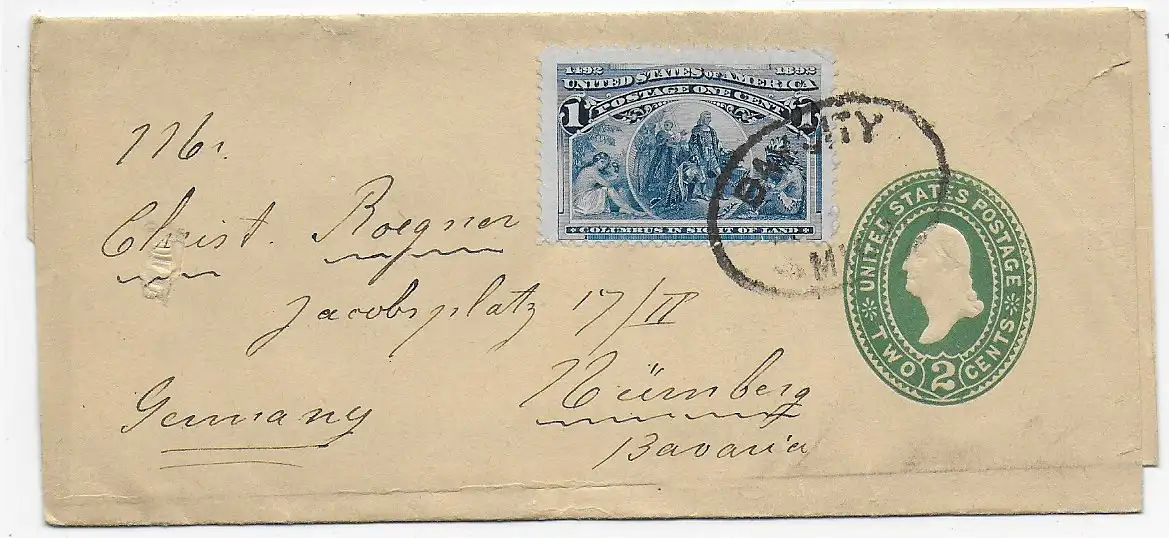 1492 1892
UNITED STATES OF AMERICA
POSTAGE ONE CENT
1 1
COLUMBUS IN SIGHT OF LAND
BAY CITY
MICH
UNITED STATES POSTAGE
TWO 2 CENTS
Mr.
Christ. Roegner
Jacobsplatz 17/II
Nürnberg
Germany
Bavaria